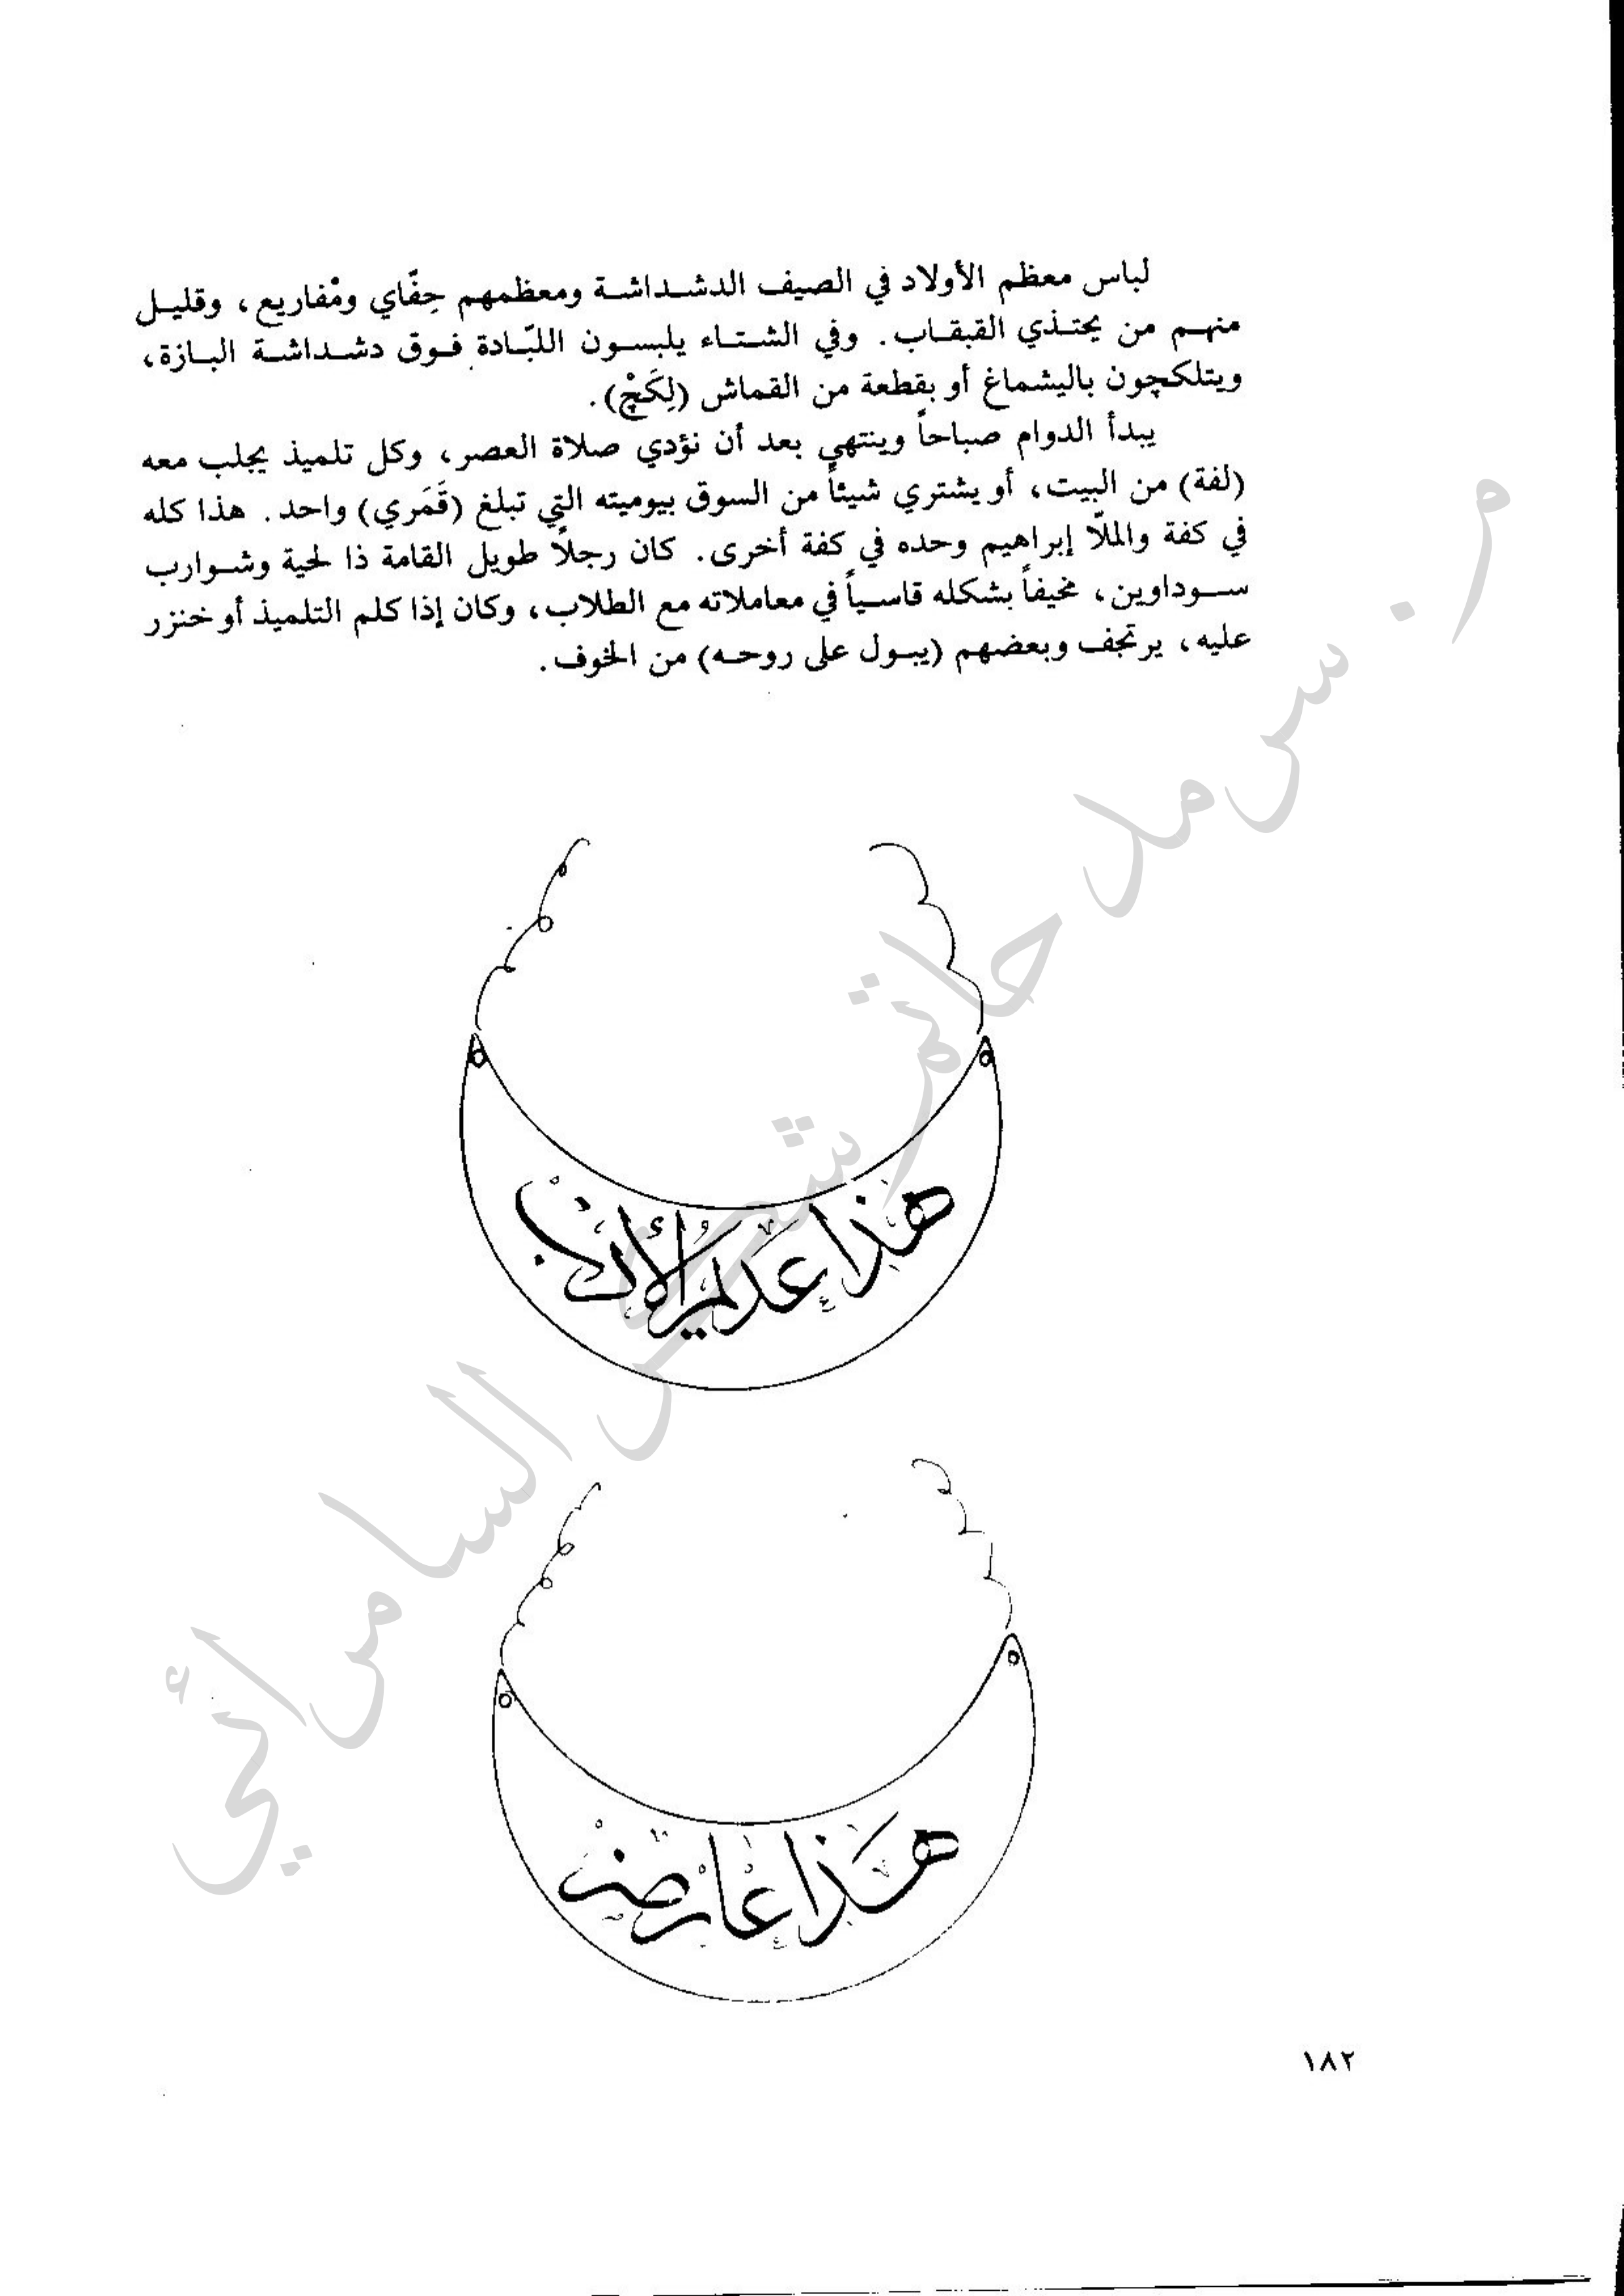 لباس معظم الأولاد في الصيف الدشـداشـة ومعظمهم حِفّاي ومْفاريع، وقليـل
منهـم من يحتـذي القبقـاب. وفي الشـتـاء يلبسـون اللبّـادة فـوق دشـداشـة البـازة،
ويتلكچون باليشماغ أو بقطعة من القماش (لِكَچْ).
يبدأ الدوام صباحاً وينتهي بعد أن نؤدي صلاة العصر، وكل تلميذ يجلب معه
(لفة) من البيت، أو يشتري شيئاً من السوق بيوميته التي تبلغ (قَمَري) واحد. هذا كله
في كفة والملّا إبراهيم وحده في كفة أخرى. كان رجلًا طويل القامة ذا لحية وشـوارب
سـوداوين، مخيفاً بشكله قاسـياً في معاملاته مع الطلاب، وكان إذا كلم التلميذ أو خنزر
عليه، يرتجف وبعضهم (يبـول على روحـه) من الخوف.
هذا عديم الأدب
هذا عارضر
١٨٢
م. سرمد حاتم شكر السامرائي